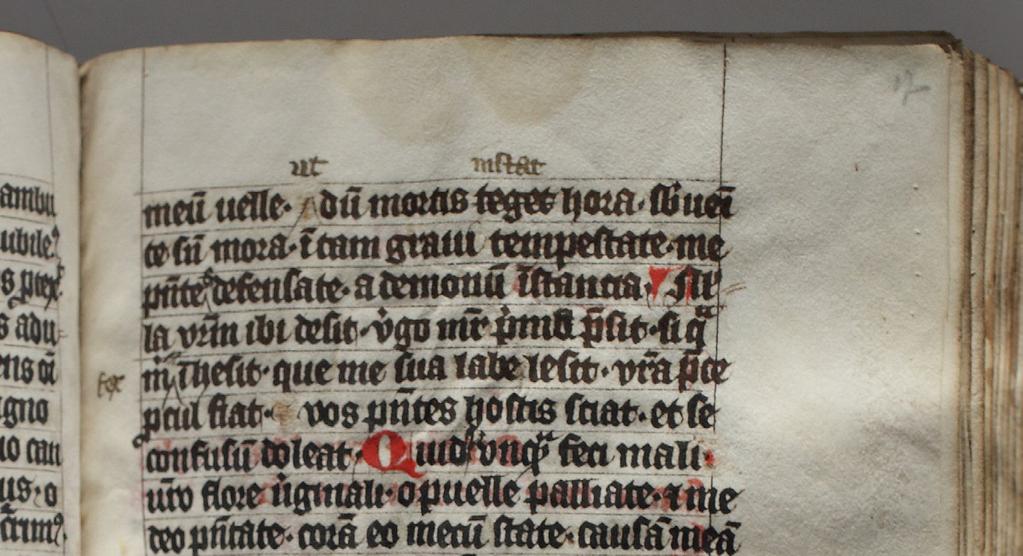 17
ut instat
meū uelle· dū mortis teget hora· sb̄ueī
te sū mora· ī tam graui tempestate· me
pn̄te defensate· a demonū īstancia· Nl̄
la vr̄m ibi desit· v̓go mr̄ pm̄ p̄sit· si q̄
m̄ thesit· que me sua labe lesit· vr̄a p̄ce
pcul fiat· vos pn̄tes hostis sciat· et se
confusū doleat· Quidq̓ vnq̄ feci mali·
ur̄o flore ūginali· o puelle palliate· ⁊ me
deo pn̄tate· corā eo mecū state· causā meā
ambu
ubile
s ptex
s adu
ens oī
igno
io cau
us· o
ctrim